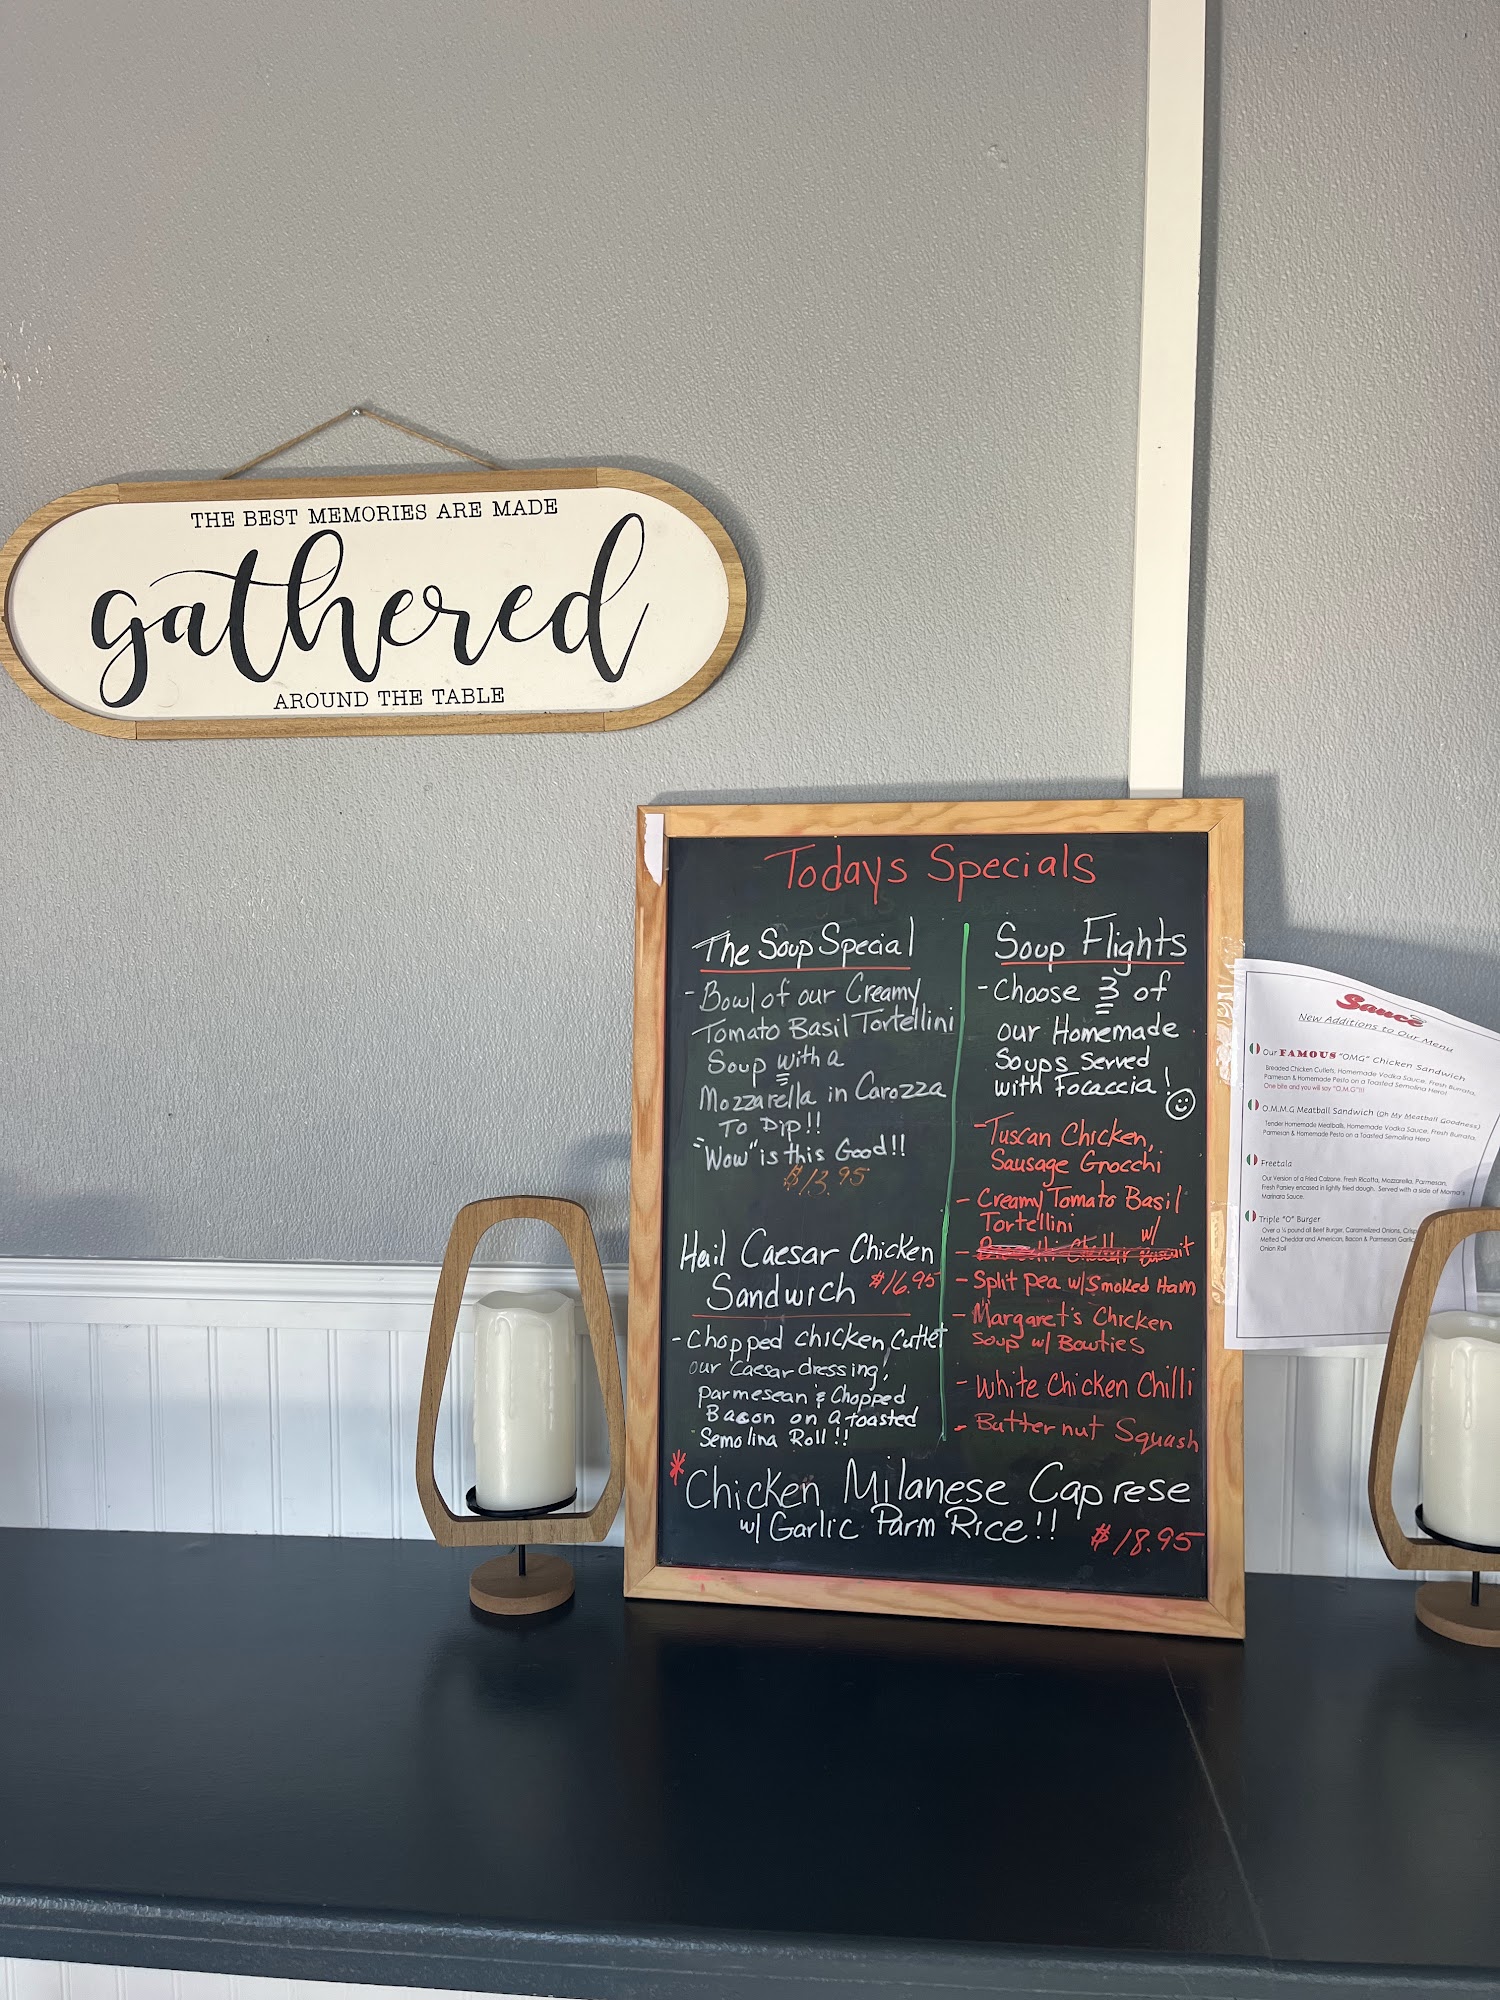 THE BEST MEMORIES ARE MADE
gathered
AROUND THE TABLE
Todays Specials
The Soup Special
- Bowl of our Creamy
Tomato Basil Tortellini
Soup with a
Mozzarella in Carozza
To Dip!!
"Wow" is this Good!!
$13.95
Hail Caesar Chicken
Sandwich $16.95
- Chopped chicken Cutlet
our Caesar dressing,
parmesean & Chopped
Bacon on a toasted
Semolina Roll!!
Soup Flights
- Choose 3 of
our Homemade
Soups Served
with Focaccia!
- Tuscan Chicken,
Sausage Gnocchi
- Creamy Tomato Basil
Tortellini
w/
- Split pea w/Smoked Ham
- Margaret's Chicken
Soup w/ Bowties
- White Chicken Chilli
- Butternut Squash
* Chicken Milanese Caprese
w/ Garlic Parm Rice!!
$18.95
Sauce
New Additions to Our Menu
Our FAMOUS "OMG" Chicken Sandwich
Breaded Chicken Cutlets, Homemade Vodka Sauce, Fresh Burrata,
Parmesan & Homemade Pesto on a Toasted Semolina Hero!
One bite and you will say "O.M.G"!!!
O.M.M.G Meatball Sandwich (Oh My Meatball Goodness)
Tender Homemade Meatballs, Homemade Vodka Sauce, Fresh Burrata,
Parmesan & Homemade Pesto on a Toasted Semolina Hero
Freetala
Our Version of a Fried Calzone. Fresh Ricotta, Mozzarella, Parmesan,
Fresh Parsley encased in lightly fried dough. Served with a side of Mama's
Marinara Sauce.
Triple "O" Burger
Over a ¼ pound all Beef Burger, Caramelized Onions,
Melted Cheddar and American, Bacon & Parmesan
Onion Roll